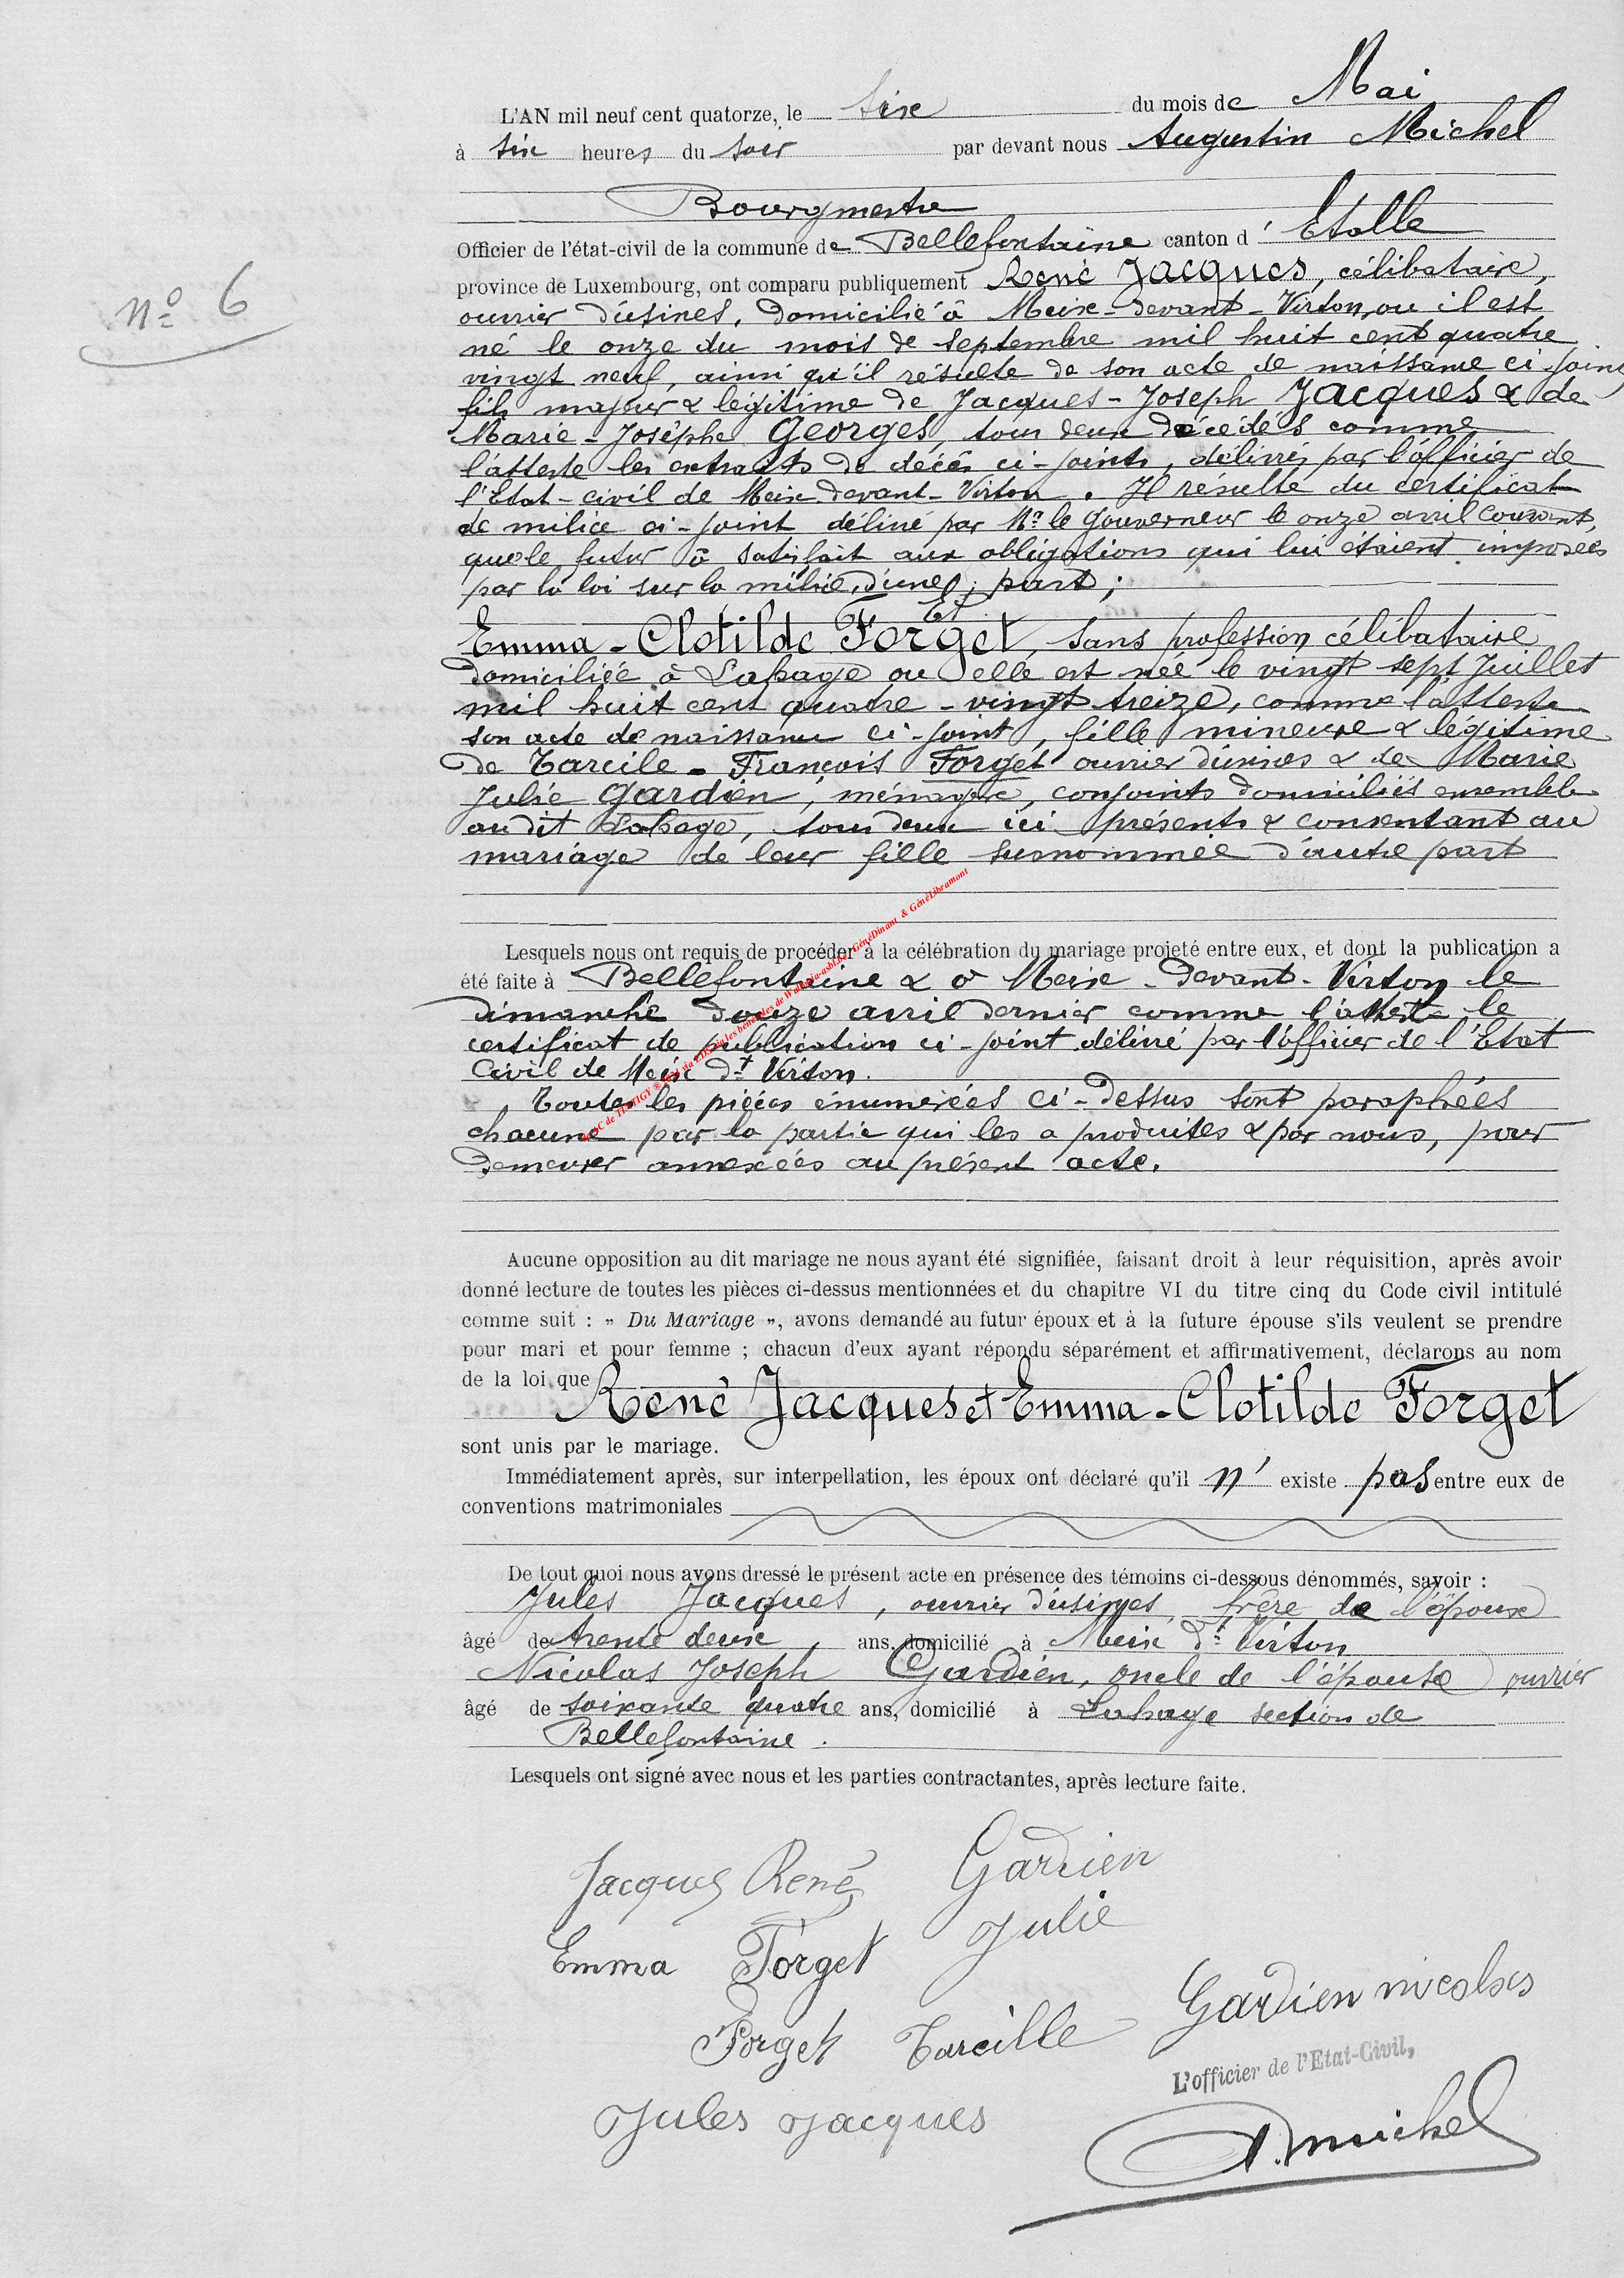 L'AN mil neuf cent quatorze, le six du mois de Mai
à six heures du soir par devant nous Augustin Michel
Bourgmestre
Officier de l'état-civil de la commune de Bellefontaine canton d' Etalle
province de Luxembourg, ont comparu publiquement René Jacques, célibataire,
N° 6
ouvrier d'usines, domicilié à Meix-devant-Virton, ou il est
né le onze du mois de septembre mil huit cent quatre
vingt neuf, ainsi qu'il résulte de son acte de naissance ci-joint
fils majeur & légitime de Jacques-Joseph Jacques & de
Marie-Josèphe Georges, tous deux décédés comme
l'atteste les extraits de décès ci-joints, délivrés par l'officier de
l'Etat-civil de Meix-devant-Virton. Il résulte du certificat
de milice ci-joint délivré par Mr le Gouverneur le onze avril courant,
que le futur à satisfait aux obligations qui lui étaient imposées
par la loi sur la milice, d'une part;
Et
Emma-Clotilde Forget, sans profession, célibataire
domiciliée à Lahage ou elle est née le vingt sept Juillet
mil huit cent quatre-vingt treize, comme l'atteste
son acte de naissance ci-joint, fille mineure & légitime
de Tarcile-François Forget ouvrier d'usines & de Marie
Julie Gardien, ménagère, conjoints domiciliés ensemble
au dit Lahage, tous deux ici présents & consentant au
mariage de leur fille susnommée d'autre part
Lesquels nous ont requis de procéder à la célébration du mariage projeté entre eux, et dont la publication a
été faite à Bellefontaine & à Meix-devant-Virton le
dimanche douze avril dernier comme l'atteste le
certificat de publication ci-joint délivré par l'officier de l'Etat
Civil de Meix dt Virton.
Toutes les pièces énumérées ci-dessus sont paraphées
chacune par la partie qui les a produites & par nous, pour
demeurer annexées au présent acte.
Aucune opposition au dit mariage ne nous ayant été signifiée, faisant droit à leur réquisition, après avoir
donné lecture de toutes les pièces ci-dessus mentionnées et du chapitre VI du titre cinq du Code civil intitulé
comme suit : „ Du Mariage „, avons demandé au futur époux et à la future épouse s'ils veulent se prendre
pour mari et pour femme ; chacun d'eux ayant répondu séparément et affirmativement, déclarons au nom
de la loi que
René Jacques et Emma-Clotilde Forget
sont unis par le mariage.
Immédiatement après, sur interpellation, les époux ont déclaré qu'il n' existe pas entre eux de
conventions matrimoniales
De tout quoi nous avons dressé le présent acte en présence des témoins ci-dessous dénommés, savoir :
Jules Jacques, ouvrier d'usines, frère de l'époux
âgé de trente deux, ans, domicilié à Meix dt Virton
Nicolas Joseph Gardien, oncle de l'épouse ouvrier
âgé de soixante quatre ans, domicilié à Lahage section de
Bellefontaine.
Lesquels ont signé avec nous et les parties contractantes, après lecture faite.
Jacques René Gardien
Julie
Emma Forget
Gardien nicolas
Forget Tarcille
L'officier de l'Etat-Civil,
Jules Jacques
A. Michel